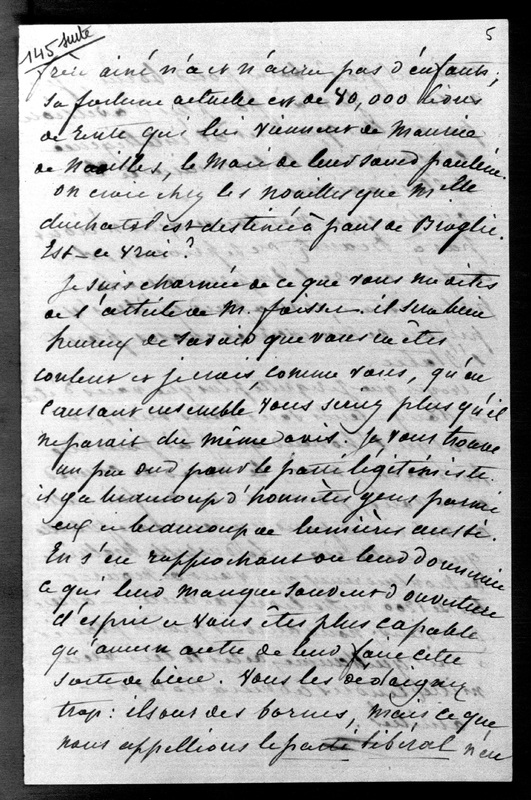 145 suite
5
frère ainé n'a et n'aura pas d'enfants;
sa fortune actuelle est de 40,000 livres
de rente qui lui viennent de Maurice
de Noailles, le Mari de leur soeur pauline.
on croit chez les noailles que Melle
duchatel est destinée à paul de Broglie.
Est-ce vrai?
Je suis charmée de ce que vous me dites
de l'article de M. foisset. il sera bien
heureux de savoir que vous en êtes
content et je crois comme vous, qu'en
causant ensemble vous serez plus qu'il
ne parait du même avis. Je vous trouve
un peu dur pour le parti légitimiste.
il y a beaucoup d'honnêtes gens parmi
eux et beaucoup de lumières aussi.
En s'en rapprochant on leur donnerait
ce qui leur manque souvent d'ouverture
d'esprit et vous êtes plus capable
qu'aucun autre de leur faire cette
sorte de bien. Vous les dédaignez
trop: ils ont des bornes, mais ce que
nous appellions le parti libéral n'en